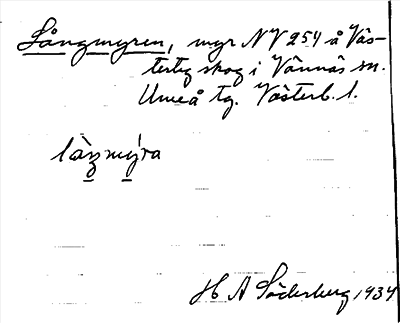 Långmyren, myr NV 254 å Väs-
terteg skog i Vännäs sn.
Umeå tg. Västerb. l.
làŋmýra
H A Söderberg 1934